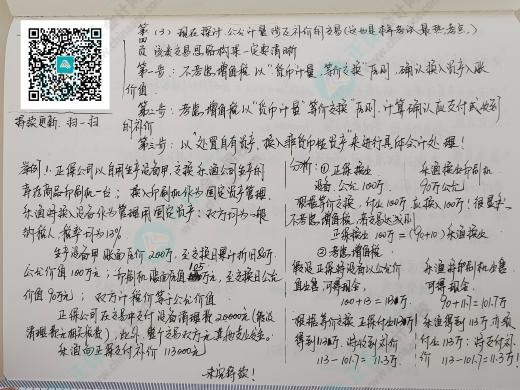 第四页
(3) 现在探讨公允计量涉及补价的交易(这也是本年考试最热考点。)
该类交易思路构架一定要清晰
第一步:不考虑增值税以“货币计量、等价交换”原则,确认换入资产入账
价值
第二步:考虑增值税以“货币计量、等价交换”原则,计算确认应支付或收到
的补价
第三步:以“处置自有资产,换入非货币性资产”来进行具体会计处理!
释放更新 扫一扫
举例1.正保公司以自用生产设备甲,交换乐渔公司生产的
库存商品印刷机一台;换入印刷机作为固定资产管理,
乐渔对换入设备作为管理用固定资产;双方均为一般
纳税人,税率均为13%
生产设备甲账面原价200万,至交换日累计折旧80万
公允价值100万元;印刷机账面价值105万元,至交换日公允
价值90万元;双方计税价等于公允价值
正保公司在交易中支付设备清理费20000元(假设
清理费无相关税费);此外,整个交易双方无其他支出发生。
乐渔向正保支付补价113000元
未完释放!
分析:①正保换出
设备,公允100万
乐渔换出印刷机
90万公允
根据等价交换,付出100万应换入100万!很显然
不考虑增值税,若交易达成则
正保换出100万=(90+10)乐渔换出
②考虑增值税
假设正保将设备以公允价
直出售可得现金,
100+13=113万
乐渔将印刷机出售
可得现金
90+11.7=101.7万
根据等价交换正保付出113万
得到113万:将收到补价
113-101.7=11.3万
乐渔得到113万亦放
付出113万:将支付补
价113-101.7=11.3万!